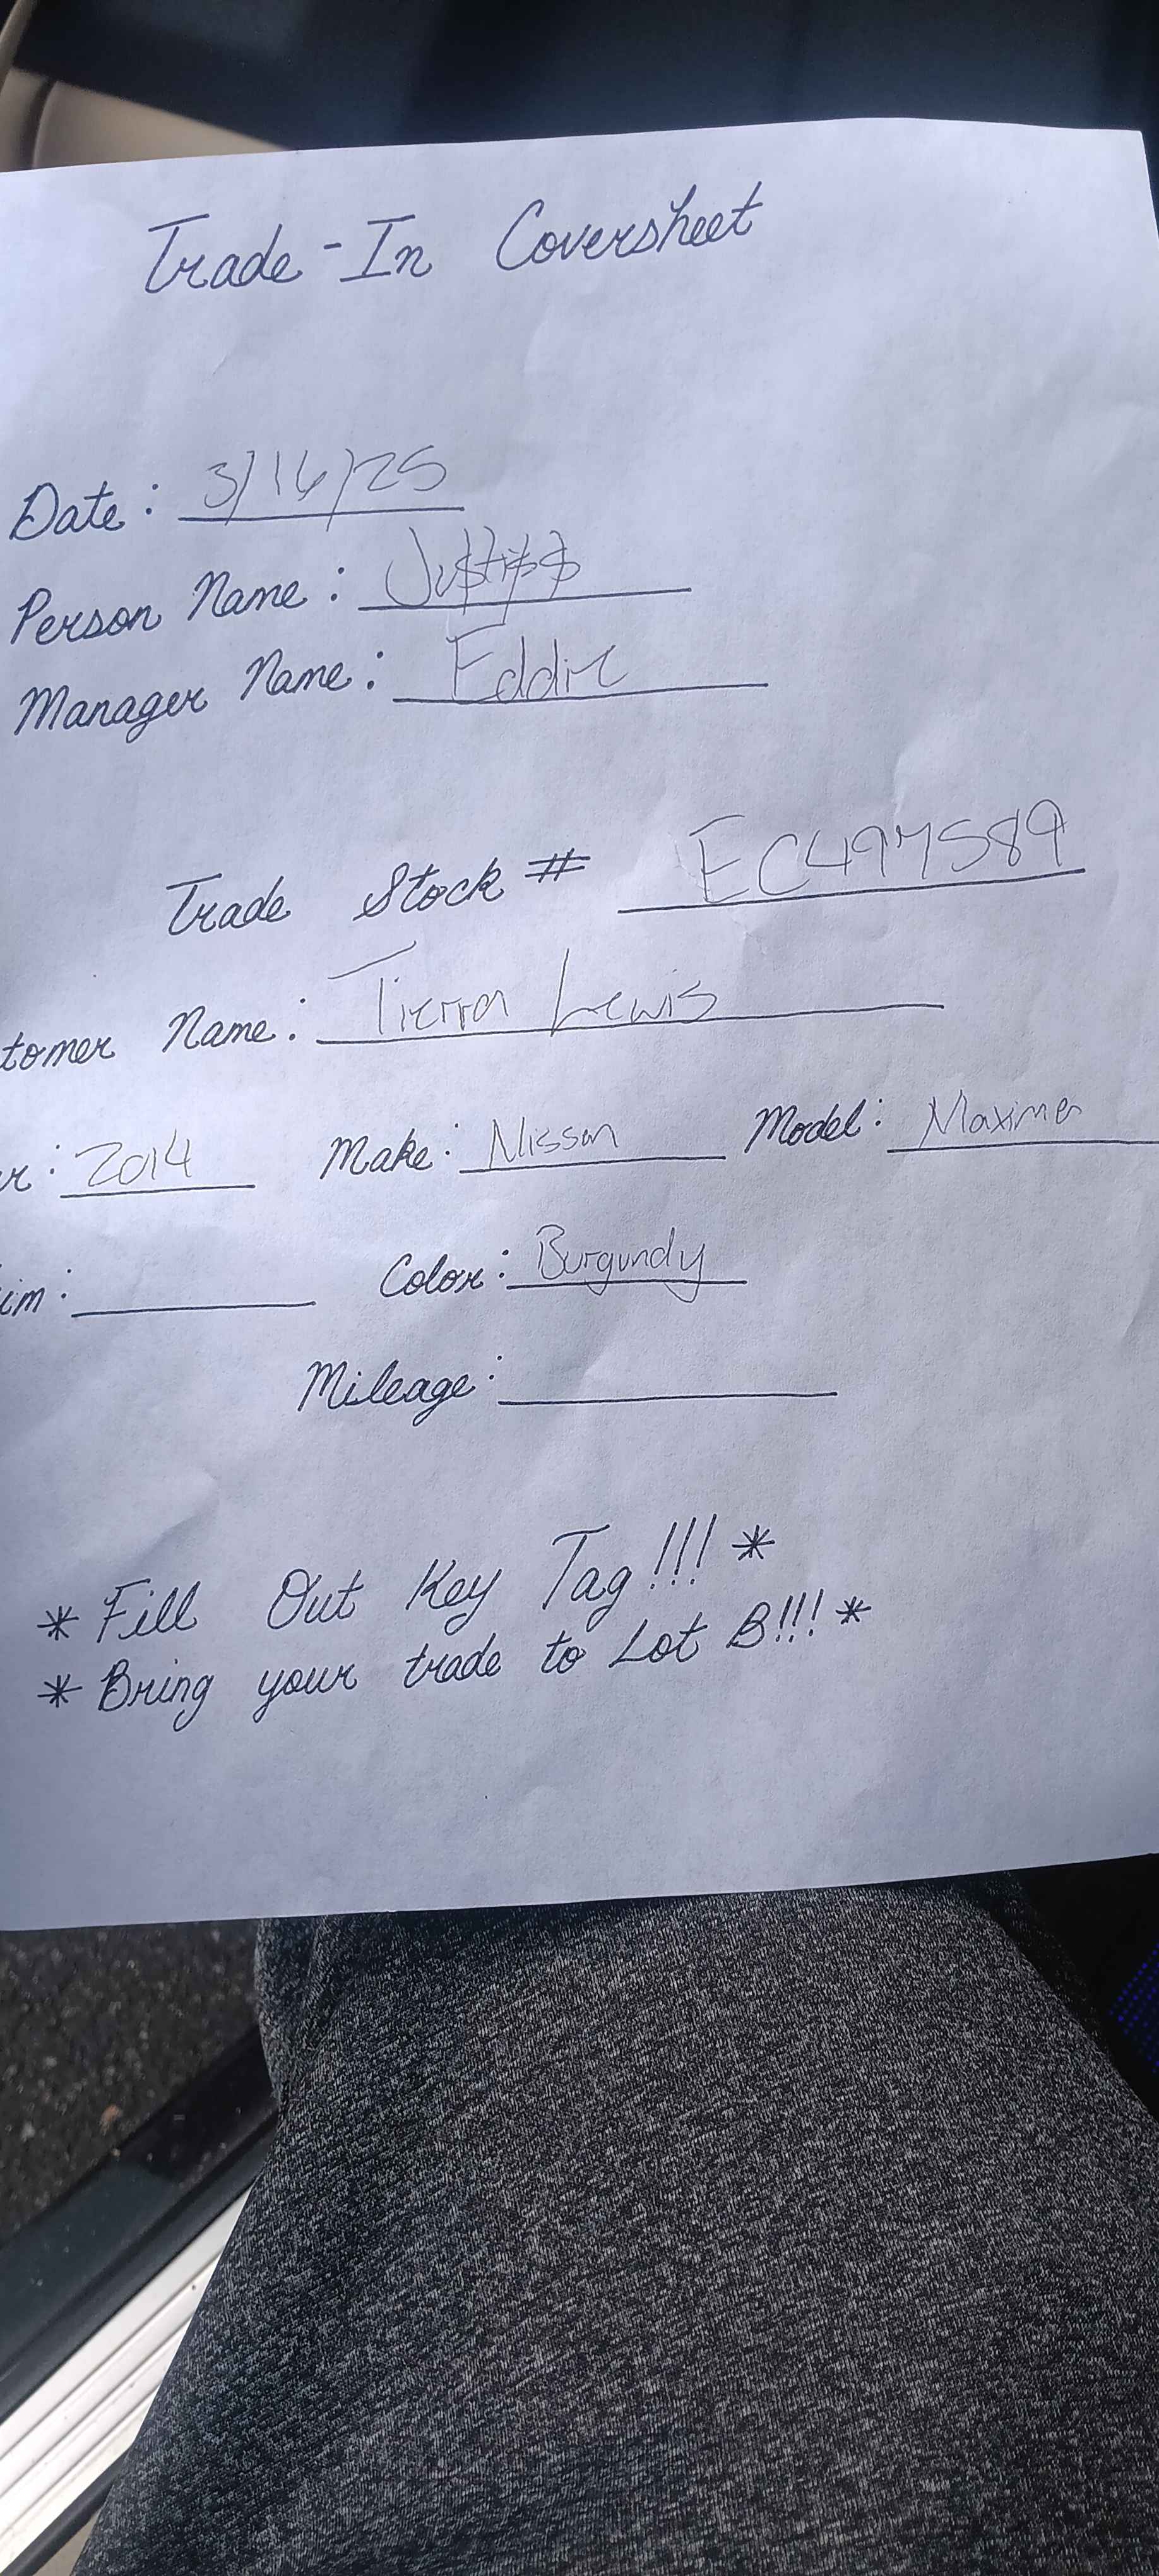 Trade-In Coversheet
Date: 3/16/25
Person Name: Ju$ti$$
Manager Name: Eddie
Trade Stock # EC497589
tomer Name: Tierra Lewis
r: 2014 Make: Nissan Model: Maxima
im: Color: Burgundy
Mileage:
* Fill Out Key Tag!!! *
* Bring your trade to Lot B!!! *